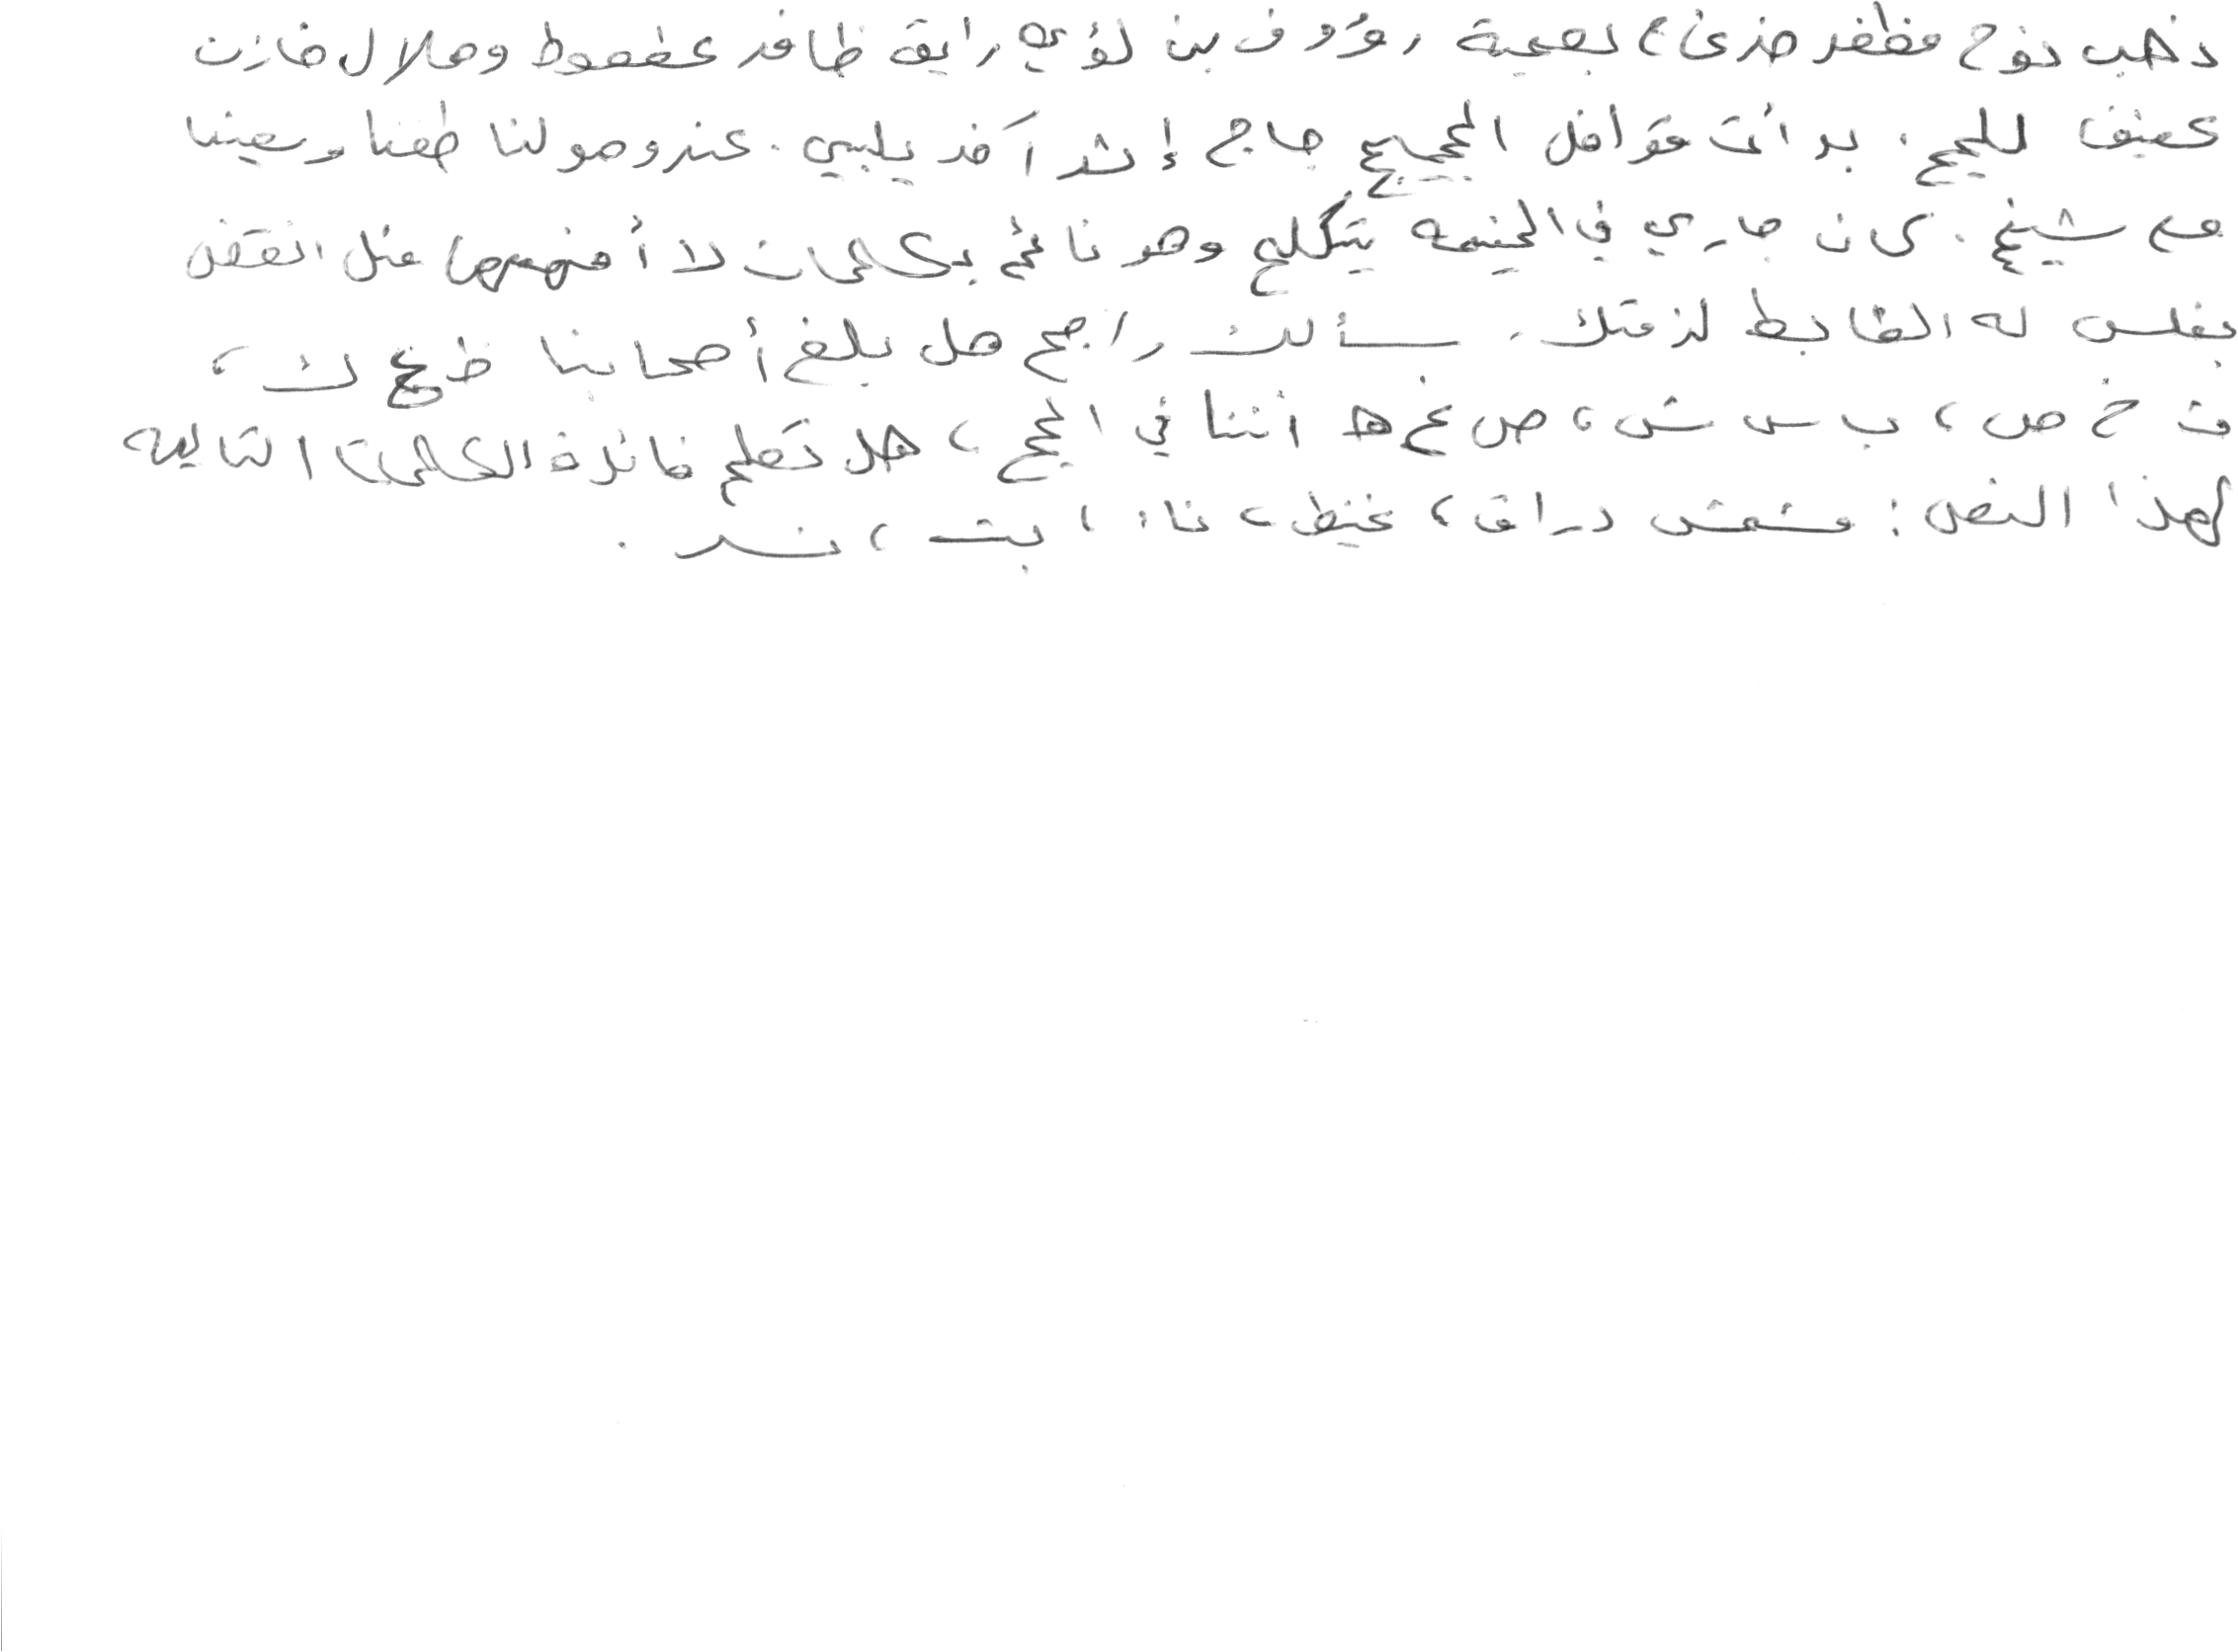 ذهب نوح مظفر ضرغام بصحبة رؤوف بن لؤي رايق ظافر عظعوط وهلال خازن
عفيف للحج. بدأت قوافل الحجيج حاج إثر آخر يلبي. عند وصولنا طفنا وسعينا
مع شيخ. كان جاري في الخيمه يتكلم وهو نائم بكلمات لا أفهمها مثل انقض
بغلس له الضابط لزقتك. سألت راجح هل بلغ أصحابنا ظ غ ث،
ث خ ص، ب س ش، ص غ ه اننا في الحج، هل تعلم فائدة الكلمات التاليه
لهذا النص: مشمش دراق، غيظ، نا، ، بت، ند.